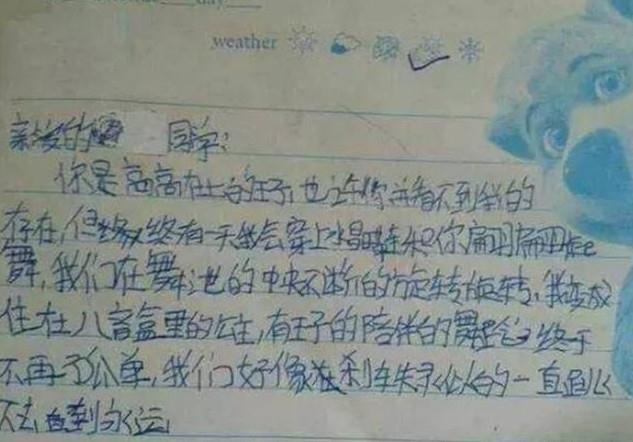 day
weather
亲爱的 同学:
你是高高在上的王子,也许你并看不到我的
存在,但终有一天我会穿上水晶鞋和你翩翩起
舞,我们在舞池的中央不断的旋转旋转,我变成
住在八音盒里的公主,有王子的陪伴的舞蹈终于
不再孤单,我们好像刹车失灵似的一直跳
下去直到永远